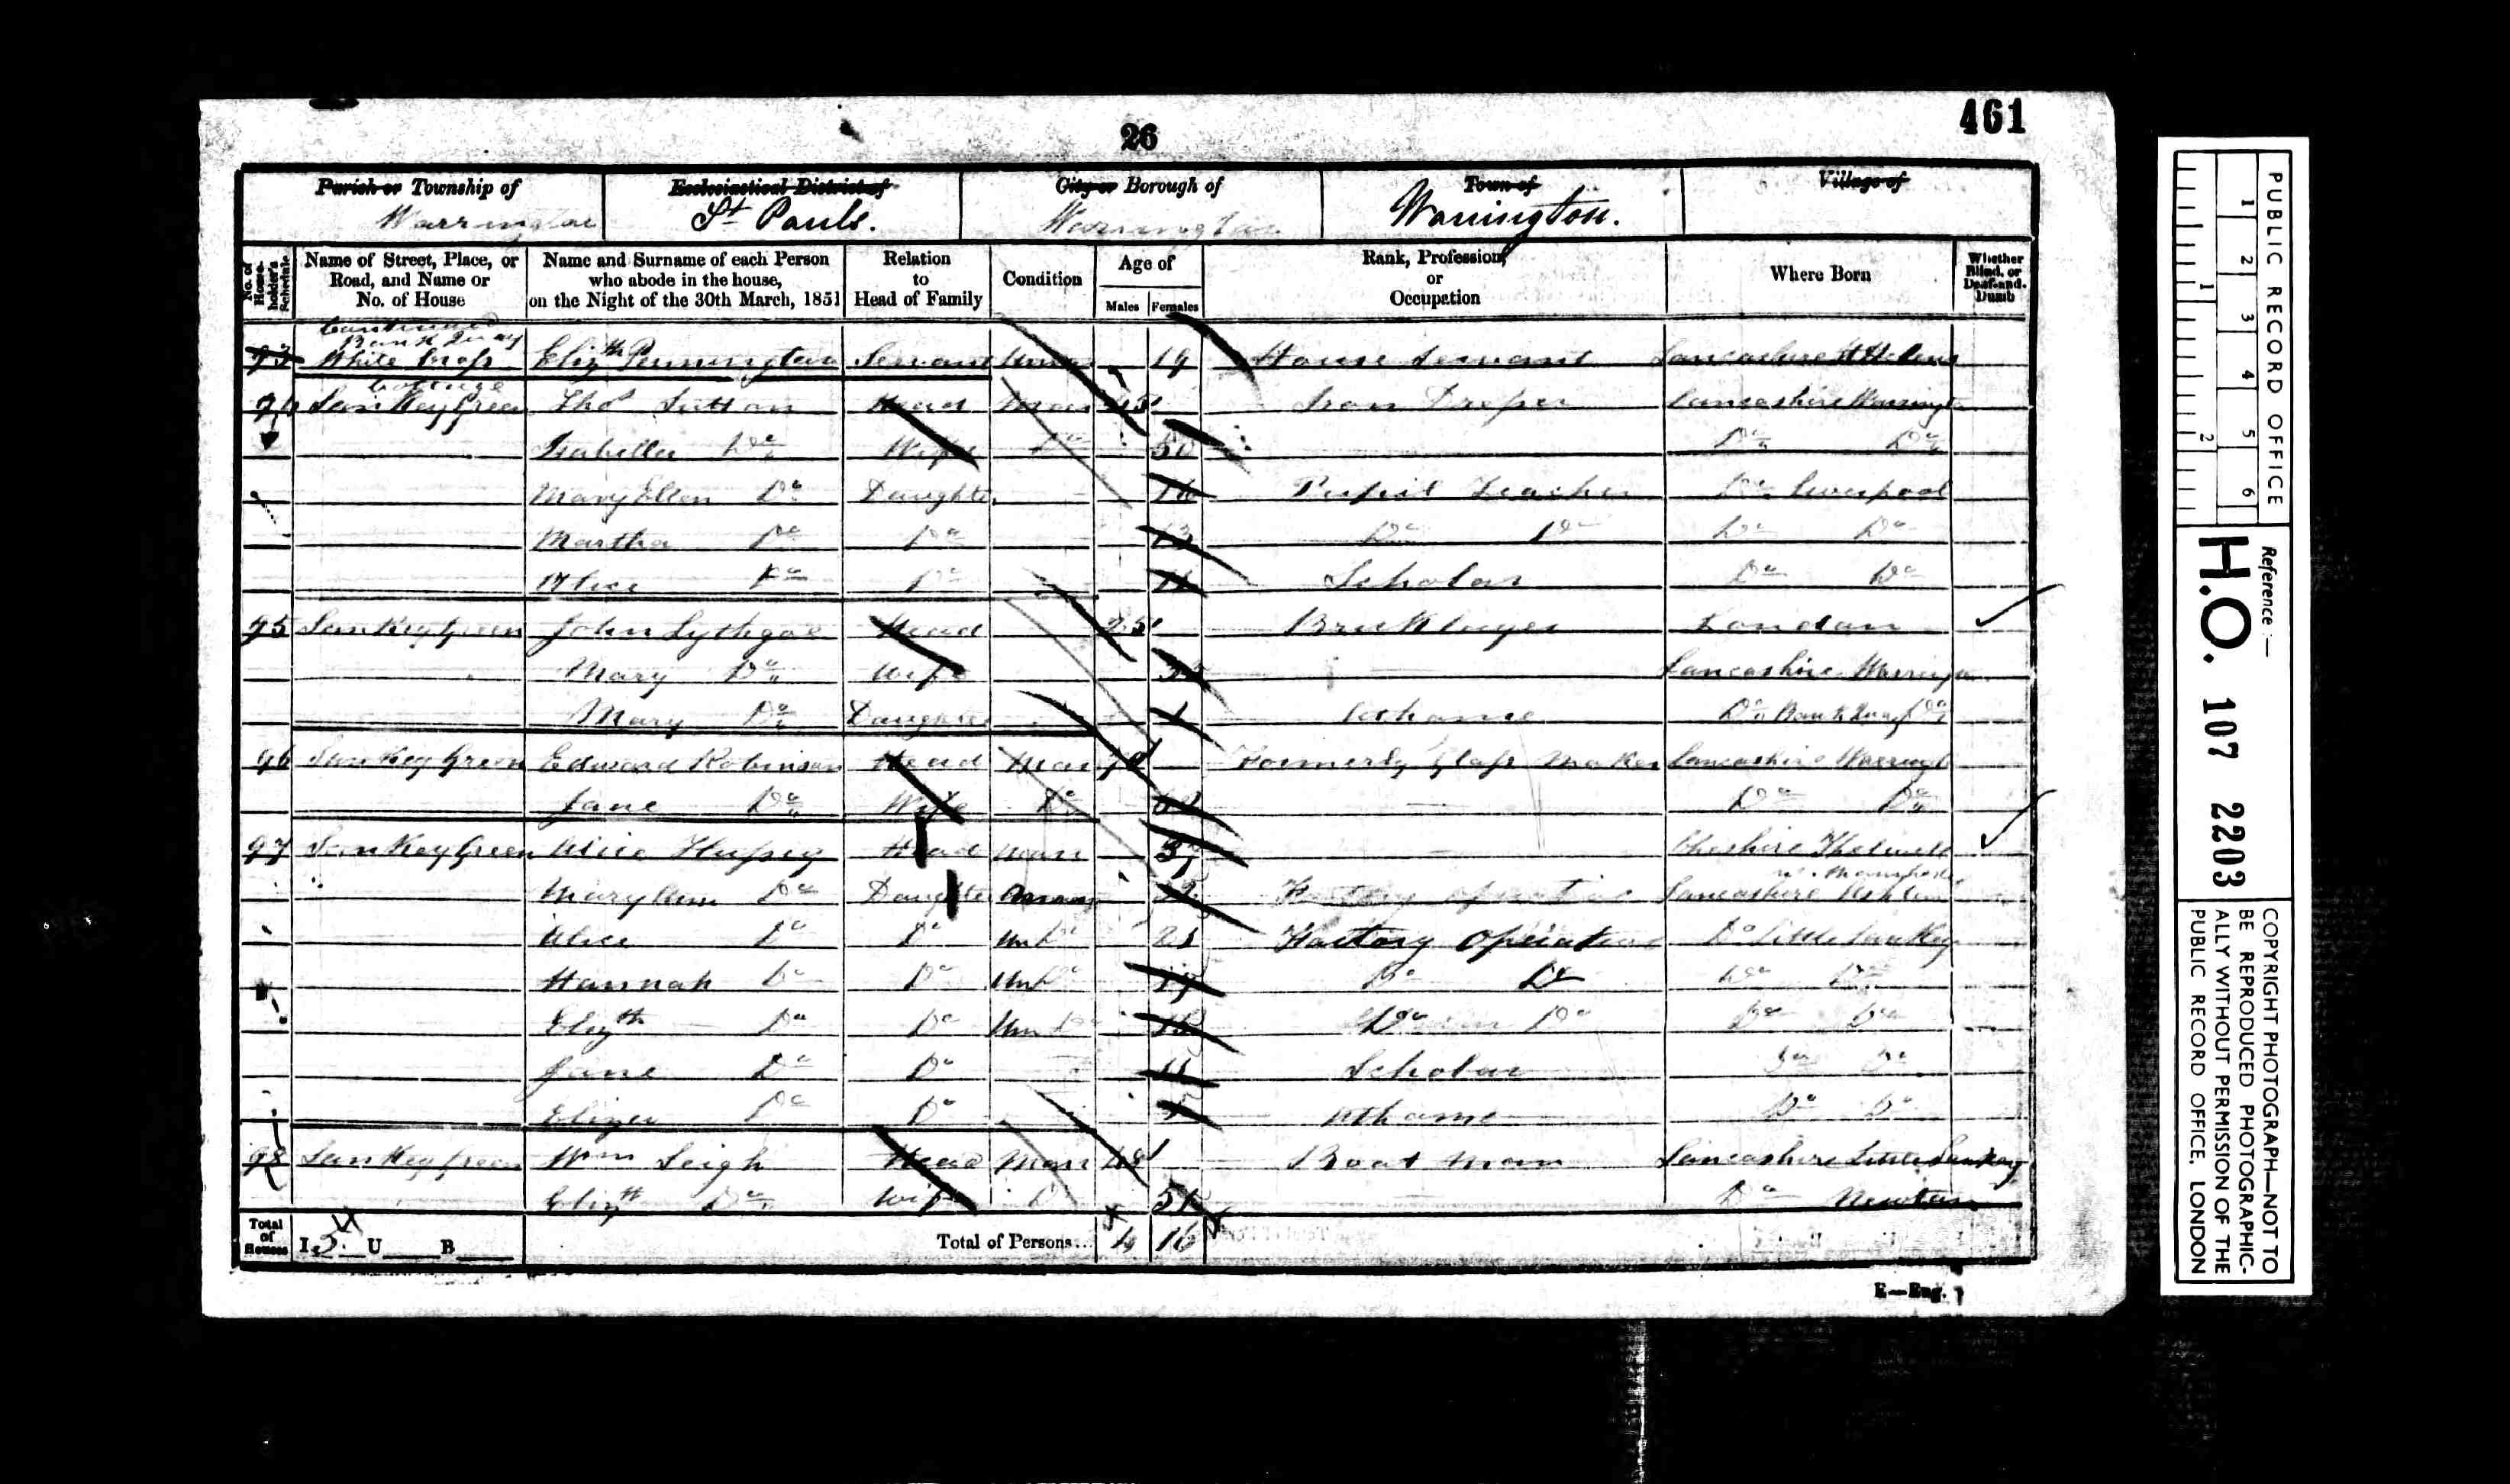 461
26
Parish or Township of Ecclesiastical District of City or Borough of Town of Village of
Warrington St Pauls. Warrington Warrington.
No. of Householder's Schedule Name of Street, Place, or Road, and Name or No. of House Name and Surname of each Person who abode in the house, on the Night of the 30th March, 1851 Relation to Head of Family Condition Age of Males Females Rank, Profession, or Occupation Where Born Whether Blind, or Deaf-and-Dumb
Continued
Bank Quay
93 White Cross Elizth Pennington Servant 19 House Servant Lancashire St Helens
Cottage
94 Sankey Green Thos Sutton Head Mar 45 Iron Lancashire Warringt
Isabella Do Wife Do 50 Do Do
Mary Ellen Do Daughter 16 Pupil Teacher Do Liverpool
Martha Do Do 13 Do Do Do Do
Alice Do Do Scholar Do Do
95 Sankey Green John Lythgoe Head Bricklayer London
Mary Do Wife Lancashire Warrington
Mary Do Daughter at home Do Bank Quay Do
96 Sankey Green Edward Robinson Head Mar Formerly Glass Maker Lancashire Warringt
Jane Do Wife Do Do Do
97 Sankey Green Alice Head Mar Cheshire Thelwall
Mary Ann Do Daughter Factory Operative Lancashire Ashton
Alice Do Do Un Do 21 Factory Operative Do Little Sankey
Hannah Do Do Un Do 19 Do Do Do Do
Elizth Do Do Un Do Do Do Do Do
Jane Do Do 11 Scholar Do Do
Eliza Do Do at home Do Do
98 Sankey Green Wm Leigh Head Mar 48 Boat man Lancashire Little Sankey
Elizth Do Wife Do 51 Do Newton
Total of Houses I 5 U B Total of Persons... 4 16
E—Eng.
PUBLIC RECORD OFFICE
1 2 3 4 5 6
1 2
Reference:—
H.O. 107 2203
COPYRIGHT PHOTOGRAPH—NOT TO
BE REPRODUCED PHOTOGRAPHIC-
ALLY WITHOUT PERMISSION OF THE
PUBLIC RECORD OFFICE, LONDON